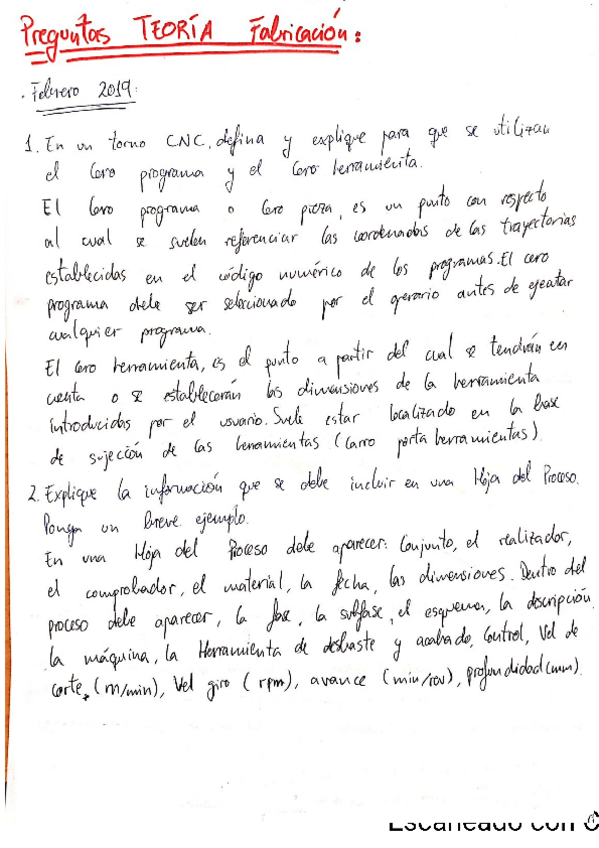 Preguntas TEORÍA Fabricación:
. Febrero 2019:
1. En un torno CNC, defina y explique para que se utilizan
el Cero programa y el Cero herramienta.
El Cero programa o Cero pieza, es un punto con respecto
al cual se suelen referenciar las coordenadas de las trayectorias
establecidas en el código numérico de los programas. El cero
programa debe ser seleccionado por el operario antes de ejecutar
cualquier programa.
El Cero herramienta, es el punto a partir del cual se tendrán en
cuenta o se establecerán las dimensiones de la herramienta
introducidas por el usuario. Suele estar localizado en la base
de sujección de las herramientas (Carro porta herramientas).
2. Explique la información que se debe incluir en una Hoja del Proceso.
Ponga un breve ejemplo.
En una Hoja del Proceso debe aparecer: Conjunto, el realizador,
el comprobador, el material, la fecha, las dimensiones. Dentro del
proceso debe aparecer, la fase, la subfase, el esquema, la descripción,
la máquina, la Herramienta de desbaste y acabado, Control, Vel de
corte, (m/min), Vel giro (rpm), avance (mm/rev), profundidad (mm).
Escaneado con C